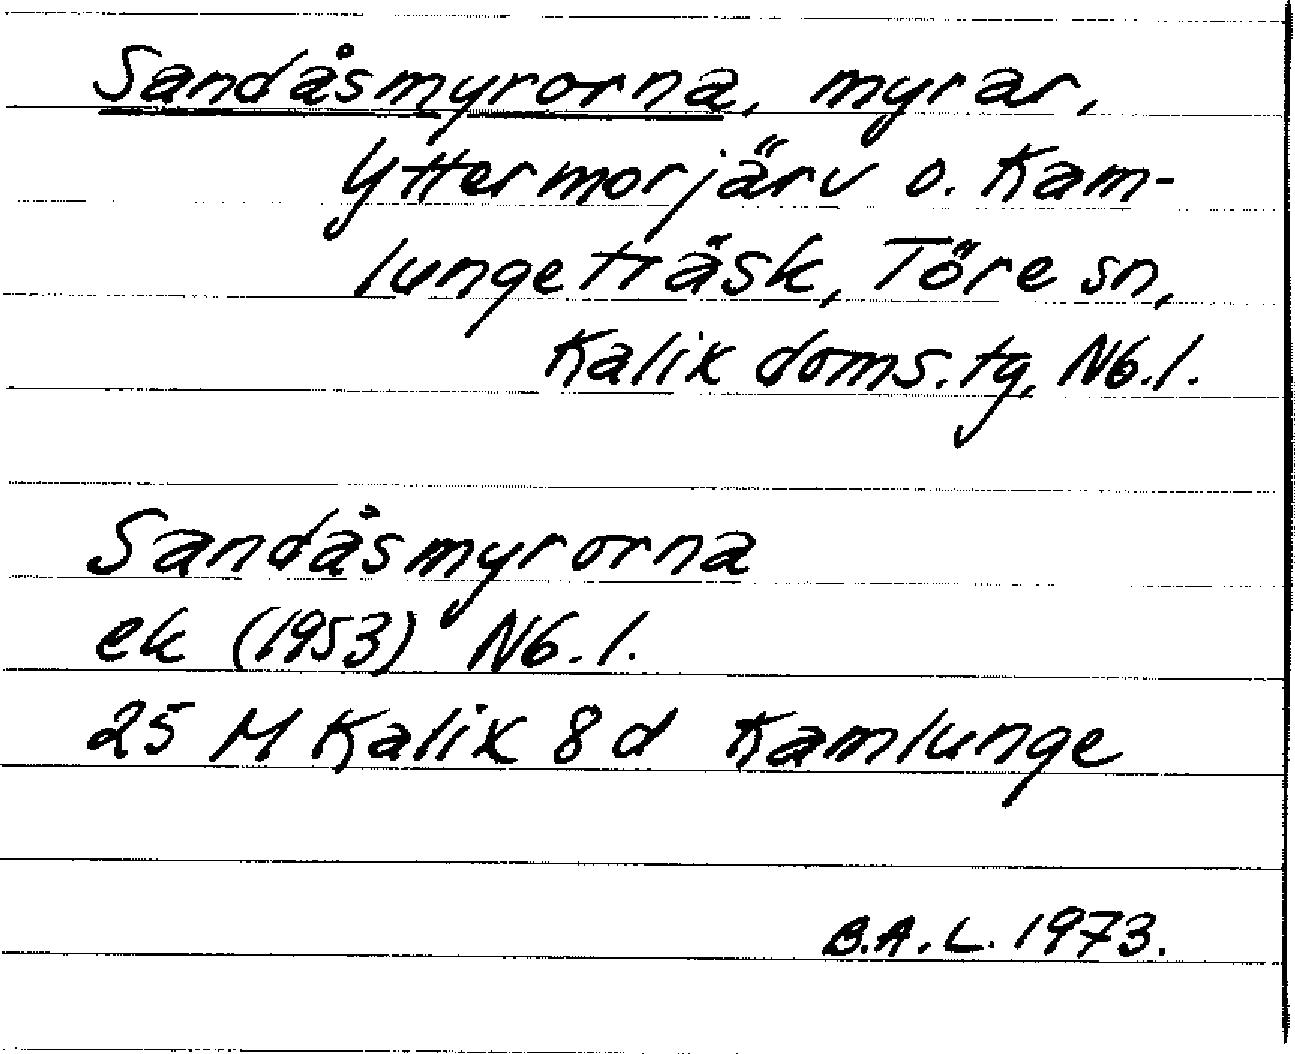 Sandåsmyrorna, myrar,
Yttermorjärv o. Kam-
lungeträsk, Töre sn,
Kalix doms.tg, Nb.l.
Sandåsmyrorna
ek (1953) Nb.l.
25 M Kalix 8 d Kamlunge
B.A.L. 1973.